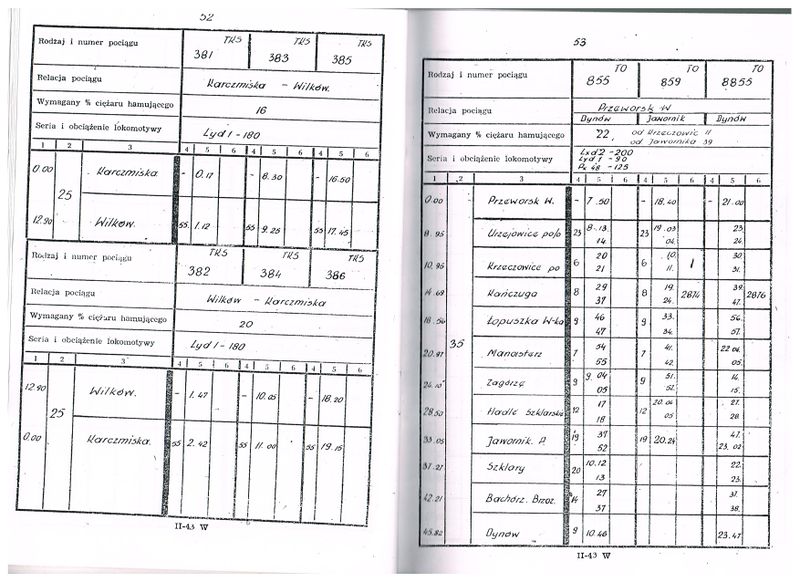 52
Rodzaj i numer pociągu TKS 381 TKS 383 TKS 385
Relacja pociągu Karczmiska – Wilków.
Wymagany % ciężaru hamującego 16
Seria i obciążenie lokomotywy Lyd1 - 180
1 2 3 4 5 6 4 5 6 4 5 6
0.00 Karczmiska - 0.17 - 8.30 - 16.50
25
12.90 Wilków. 55 1.12 55 9.25 55 17.45
Rodzaj i numer pociągu TKS 382 TKS 384 TKS 386
Relacja pociągu Wilków – Karczmiska
Wymagany % ciężaru hamującego 20
Seria i obciążenie lokomotywy Lyd1 - 180
1 2 3 4 5 6 4 5 6 4 5 6
12.90 Wilków. - 1.47 - 10.05 - 18.20
25
0.00 Karczmiska. 55 2.42 55 11.00 55 19.15
II-43 W
53
Rodzaj i numer pociągu TO 855 TO 859 TO 8855
Relacja pociągu Przeworsk W
Dynów Jawornik Dynów
Wymagany % ciężaru hamującego 22, od Krzeczowic 11
od Jawornika 39
Seria i obciążenie lokomotywy Lxd2 - 200
Lyd1 - 90
Px 48 - 125
1 2 3 4 5 6 4 5 6 4 5 6
0.00 Przeworsk W. - 7.50 - 18.40 - 21.00
8.95 Urzejowice po/o 23 8.13 23 19.03 23.
14 04. 24.
10.95 Krzeczowice po 6 20 6 10. 1 30.
21 11. 31.
14.69 Kańczuga 8 29 8 19. 2874 39. 2876
37 24. 47.
18.56 Łopuszka W-ka 9 46 9 33. 56.
47 34. 57.
35
20.97 Manasterz 7 54 7 41. 22.04.
55 42. 05.
24.10 Zagórze 9 9.04 9 51. 14.
05 52. 15.
28.50 Hadle Szklarskie 12 17 12 20.04 27.
18 05 28.
33.05 Jawornik. P. 19 37 19 20.24 47.
52 23.02
37.21 Szklary 20 10.12 22.
13 23.
42.21 Bachórz. Brzoz. 14 27 37.
37 38.
45.82 Dynów 9 10.46 23.47
II-43 W